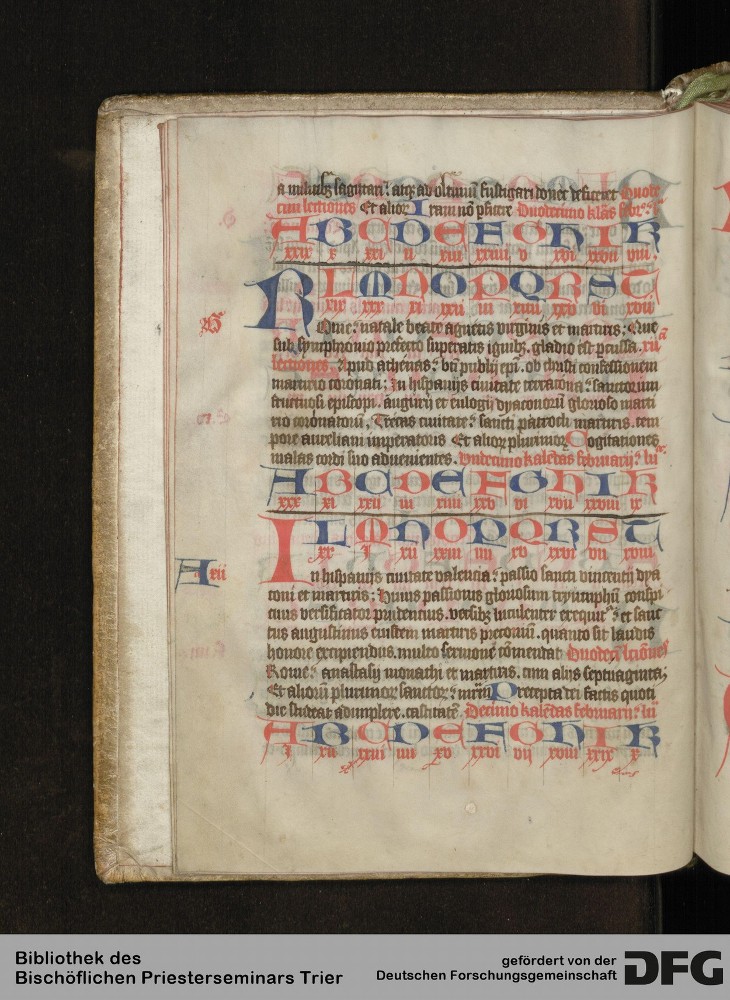 a militibus sagittari: atque ad ultimum fustigari donec deficeret Duode
cim lectiones Et alior Iram non perficere Duodecimo klas febr.
A B C D E F G H I K
xxix x xxi ii xiii xxiiii v xvi xxvii viii
R L M N O P Q R S T
xix xxx xi xxii iii xiiii xxv vi xvii
Ome: natale beate agnetis virginis et martiris: Que
sub symphronio prefecto superatis ignibz. gladio est percussa. xii
lectiones. Apud athenas: bti publij epi. ob christi confessionem
martirio coronati: In hispanijs ciuitate terracona: sanctorum
fructuosi episcopi. augurij et eulogij dyaconorum glorioso marti
rio coronatorum, Trecas ciuitate: sancti patrocli martiris. tem
pore aureliani imperatoris Et alior plurimor Cogitationes
malas cordi suo aduenientes. Undecimo kalendas februarij: lu
A B C D E F G H I K
xxx xi xxii iii xiiii xxv vi xvii xxviii ix
I L M N O P Q R S T
xx I xii xxiii iiii xv xxvi vii xviii
n hispanijs ciuitate valencia: passio sancti vincentij dya
A xii
coni et martiris: Huius passionis gloriosum tryumphum conspi
cuus versificator prudencius. versibz luculenter exequit: et sanc
tus augustinus eiusdem martiris preconium. quanto sit laudis
honore excipiendus. multo sermone comendat Duodecim lcones
Rome: anastasij monachi et martiris. cum alijs septuaginta;
Et aliorum plurimor sanctor: mrm Precepta dei factis quoti
die studeat adimplere. castitatem Decimo kalendas februarij: lu
A B C D E F G H I K
I xii xxiii iiii xv xxvi vij xviii xxix x
Bibliothek des
Bischöflichen Priesterseminars Trier
gefördert von der
Deutschen Forschungsgemeinschaft
DFG